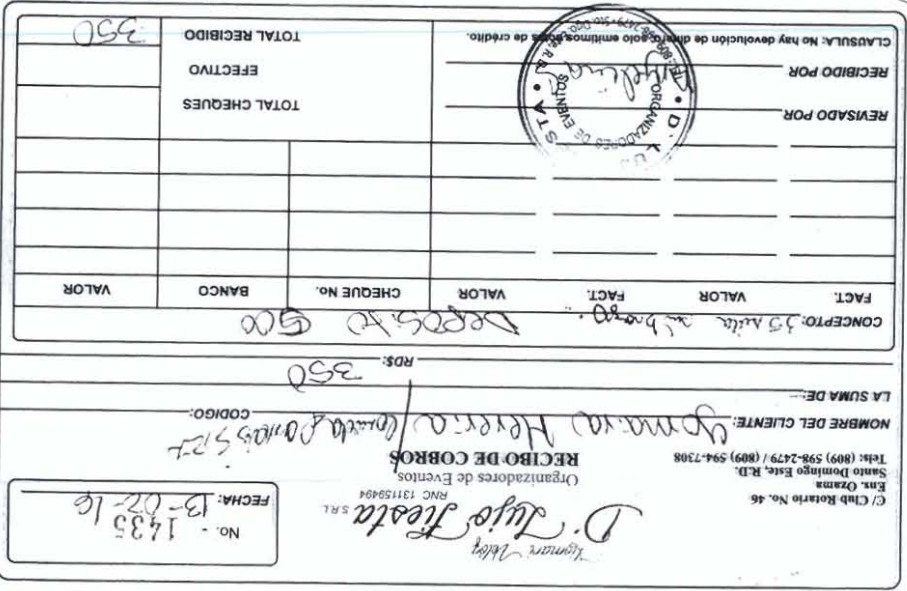 D' Lujo Fiesta S.R.L.
RNC 131159494
Organizadores de Eventos
RECIBO DE COBROS
C/ Club Rotario No. 46
Ens. Ozama
Santo Domingo Este, R.D.
Tels: (809) 598-2479 / (809) 594-7308
No. - 1435
FECHA: 13-02-16
NOMBRE DEL CLIENTE: Yomaira Herería CODIGO:
LA SUMA DE: RD$: 350
CONCEPTO: 35 silla sin brazo. Deposito 500
FACT. VALOR FACT. VALOR CHEQUE No. BANCO VALOR
REVISADO POR
RECIBIDO POR
CLAUSULA: No hay devolución de dinero, solo emitimos notas de crédito.
TOTAL CHEQUES
EFECTIVO
TOTAL RECIBIDO 350
ORGANIZADORES DE EVENTOS